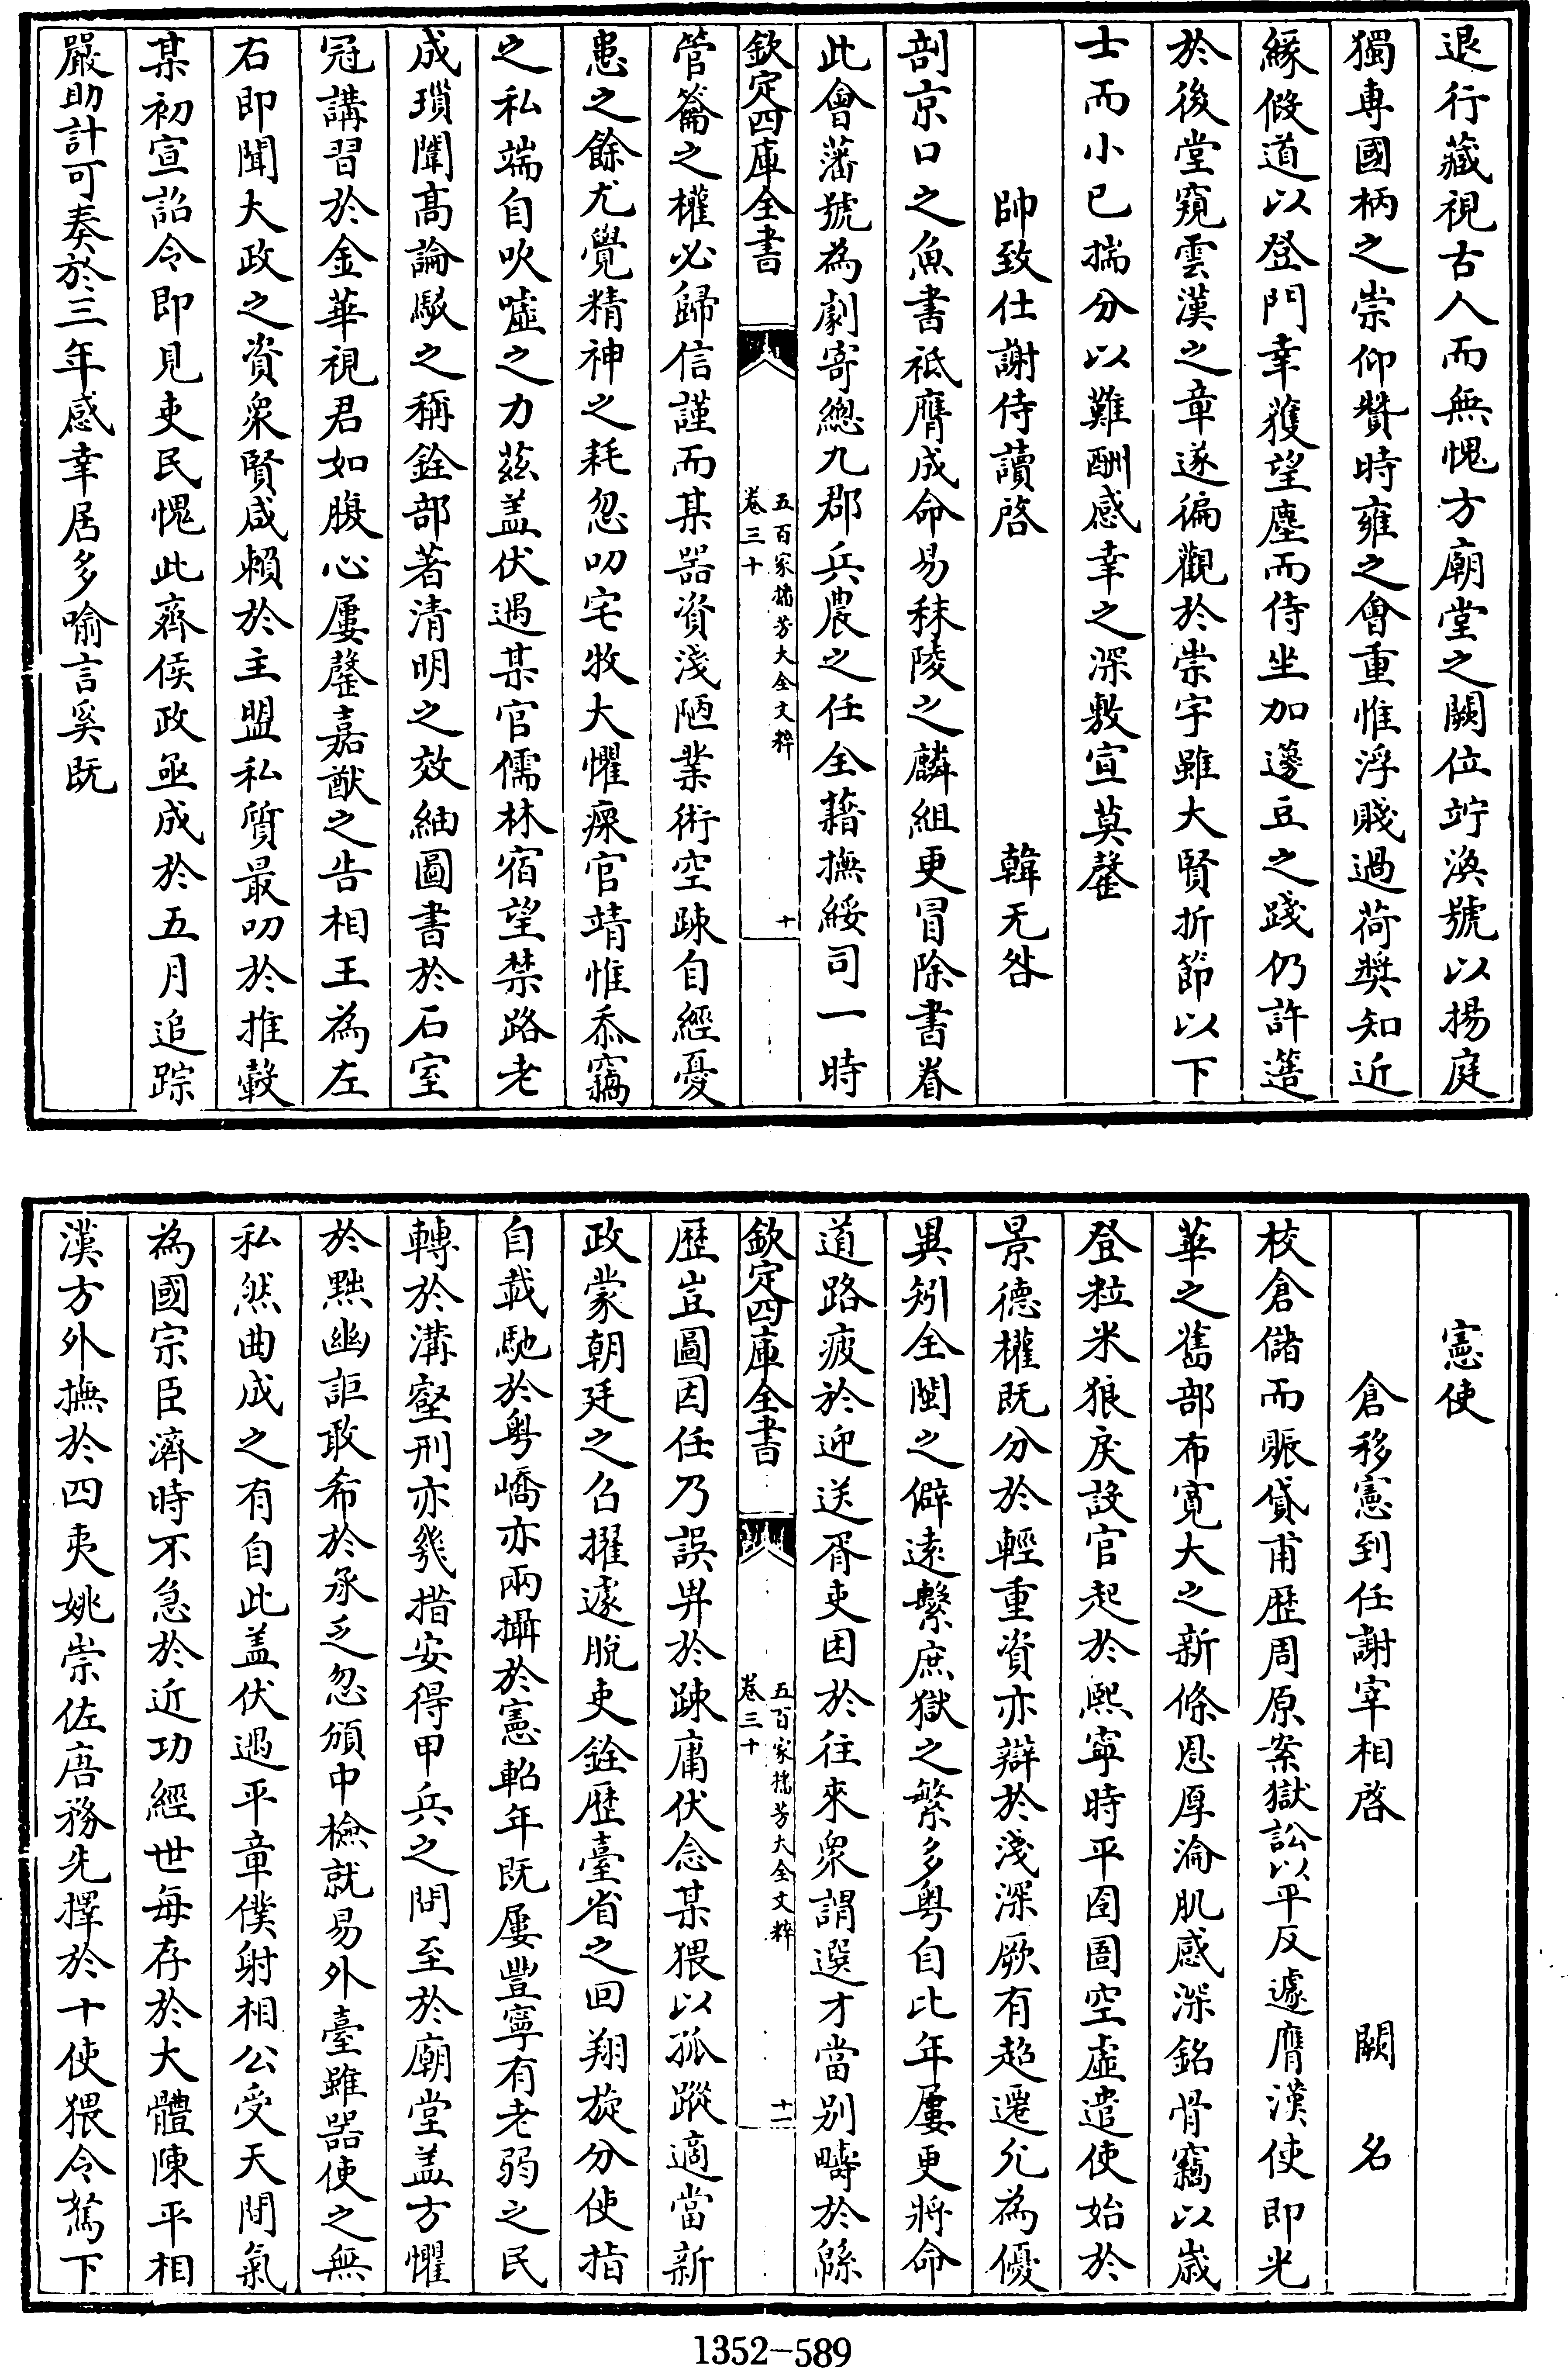 退行藏視古人而無愧方廟堂之闕位竚渙號以揚庭
獨専國柄之崇仰贊時雍之會重惟浮賤過荷奬知近
緣假道以登門幸獲望塵而侍坐加籩豆之踐仍許簉
於後堂窺雲漢之章遂徧觀於崇宇雖大賢折節以下
士而小已揣分以難酬感幸之深敷宣莫罄
帥致仕謝侍讀啓　韓无咎
剖京口之魚書祗膺成命易秣陵之麟組更冒除書眷
此會藩號為劇寄總九郡兵農之任全藉撫綏司一時
欽定四庫全書　五百家播芳大全文粹　卷三十　十
管籥之權必歸信謹而某器資淺陋業術空踈自經憂
患之餘尤覺精神之耗忽叨宅牧大懼瘝官靖惟忝竊
之私端自吹噓之力茲盖伏遇某官儒林宿望禁路老
成瑣闈髙論駮之稱銓部著清明之效紬圖書於石室
冠講習於金華視君如腹心屢罄嘉猷之告相王為左
右即聞大政之資衆賢咸頼於主盟私質最叨於推轂
某初宣詔令即見吏民愧此齊侯政亟成於五月追踪
嚴助計可奏於三年感幸居多喻言奚既
憲使
倉移憲到任謝宰相啓　闕名
校倉儲而賑貸甫歴周原案獄訟以平反遽膺漢使即光
華之舊部布寛大之新條恩厚淪肌感深銘骨竊以嵗
登粒米狼戾設官起於熙寧時平囹圄空虛遣使始於
景德權既分於輕重資亦辯於淺深厥有超遷允為優
異矧全閩之僻逺繫庶獄之繁多粤自比年屢更將命
道路疲於迎送胥吏困於往來衆謂選才當别疇於緜
欽定四庫全書　五百家播芳大全文粹　卷三十　十一
歴豈圖因任乃誤畀於踈庸伏念某猥以孤蹤適當新
政蒙朝廷之召擢遽脱吏銓歴臺省之回翔旋分使指
自載馳於粤嶠亦兩攝於憲軺年既屢豐寧有老弱之民
轉於溝壑刑亦幾措安得甲兵之問至於廟堂盖方懼
於黜幽詎敢希於承乏忽頒中檢就易外臺雖器使之無
私然曲成之有自此盖伏遇平章僕射相公受天間氣
為國宗臣濟時不急於近功經世每存於大體陳平相
漢方外撫於四夷姚崇佐唐務先擇於十使猥令駑下
1352-589